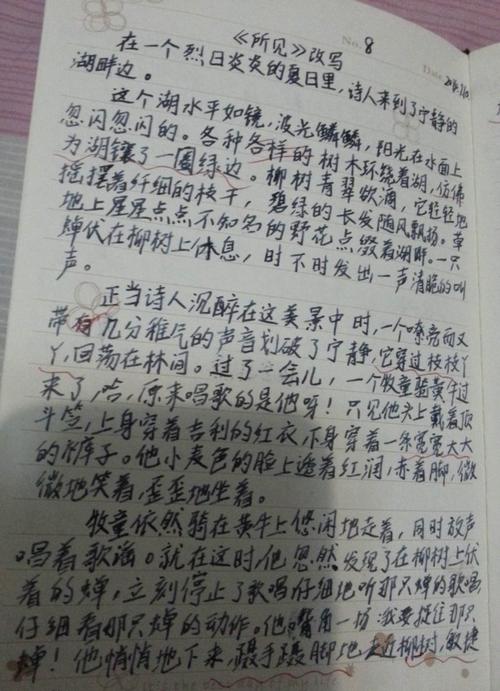 No. 8
Date
《所见》改写
在一个烈日炎炎的夏日里,诗人来到了宁静的
湖畔边。
这个湖水平如镜,波光鳞鳞,阳光在水面上
忽闪忽闪的。各种各样的树木环绕着湖,仿佛
为湖镶了一圈绿边。柳树青翠欲滴,它轻轻地
摇摆着纤细的枝干,碧绿的长发随风飘扬。草
地上星星点点不知名的野花点缀着湖畔。一只
蝉伏在柳树上休息,时不时发出一声清脆的叫
声。
正当诗人沉醉在这美景中时,一个嘹亮而又
带有几分稚气的声音划破了宁静,它穿过枝枝丫
丫,回荡在林间。过了一会儿,一个牧童骑黄牛过
来了,哈,原来唱歌的是他呀!只见他头上戴着顶
斗笠,上身穿着吉利的红衣,下身穿着一条宽宽大大
的裤子。他小麦色的脸上透着红润,赤着脚,微
微地笑着,歪歪地坐着。
牧童依然骑在黄牛上悠闲地走着,同时放声
唱着歌谣。就在这时,他忽然发现了在柳树上伏
着的蝉,立刻停止了歌唱仔细地听那只蝉的歌唱
仔细看那只蝉的动作。他嘴角一扬:我要捉住那只
蝉!他悄悄地下来,蹑手蹑脚地走近柳树,敏捷